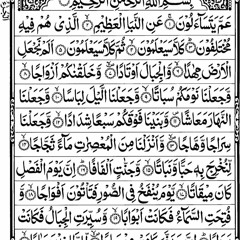 بِسْمِ اللّٰهِ الرَّحْمٰنِ الرَّحِيْمِ
عَمَّ يَتَسَآءَلُوْنَ۝ عَنِ النَّبَاِ الْعَظِيْمِ۝ الَّذِيْ هُمْ فِيْهِ
مُخْتَلِفُوْنَ۝ كَلَّا سَيَعْلَمُوْنَ۝ ثُمَّ كَلَّا سَيَعْلَمُوْنَ۝ اَلَمْ نَجْعَلِ
الْاَرْضَ مِهٰدًا۝ وَّالْجِبَالَ اَوْتَادًا۝ وَّخَلَقْنٰكُمْ اَزْوَاجًا۝
وَّجَعَلْنَا نَوْمَكُمْ سُبَاتًا۝ وَّجَعَلْنَا الَّيْلَ لِبَاسًا۝ وَّجَعَلْنَا
النَّهَارَ مَعَاشًا۝ وَّبَنَيْنَا فَوْقَكُمْ سَبْعًا شِدَادًا۝ وَّجَعَلْنَا
سِرَاجًا وَّهَّاجًا۝ وَّاَنْزَلْنَا مِنَ الْمُعْصِرٰتِ مَآءً ثَجَّاجًا۝
لِّنُخْرِجَ بِهٖ حَبًّا وَّنَبَاتًا۝ وَّجَنّٰتٍ اَلْفَافًا۝ اِنَّ يَوْمَ الْفَصْلِ
كَانَ مِيْقَاتًا۝ يَّوْمَ يُنْفَخُ فِي الصُّوْرِ فَتَاْتُوْنَ اَفْوَاجًا۝ وَّ
فُتِحَتِ السَّمَآءُ فَكَانَتْ اَبْوَابًا۝ وَّسُيِّرَتِ الْجِبَالُ فَكَانَتْ